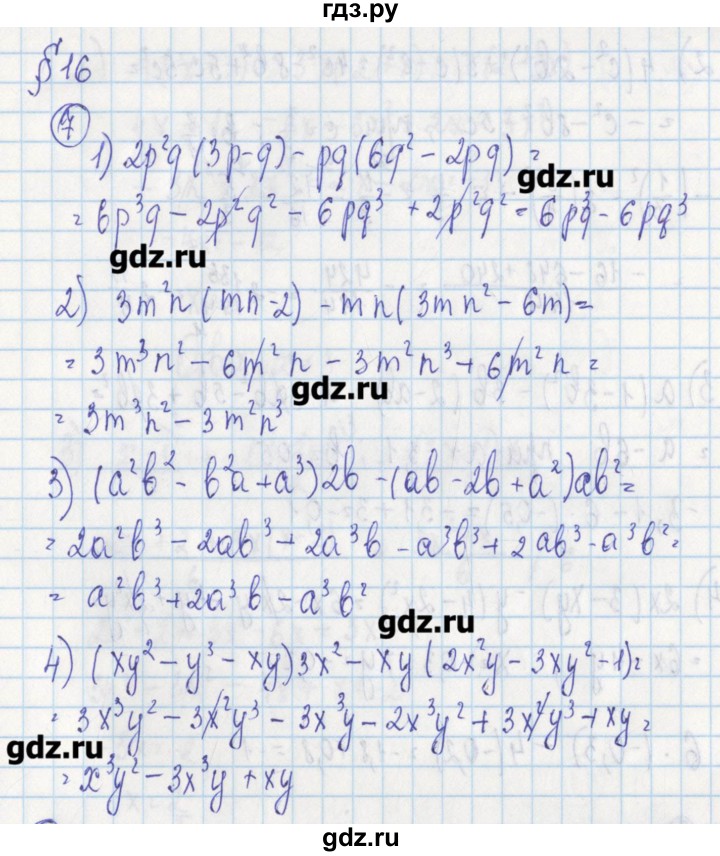 гдз.ру
§ 16
7
1) 2p²q (3p - q) - pq (6q² - 2pq) =
gdz.ru
= 6p³q - 2p²q² - 6pq³ + 2p²q² = 6p³q - 6pq³
gdz.ru
2) 3m²n (mn - 2) - mn (3mn² - 6m) =
= 3m³n² - 6m²n - 3m²n³ + 6m²n =
gdz.ru
= 3m³n² - 3m²n³
3) (a²b² - b²a + a³) 2b - (ab - 2b + a²) ab² =
= 2a²b³ - 2ab³ + 2a³b - a²b³ + 2ab³ - a³b² =
= a²b³ + 2a³b - a³b²
gdz.ru
4) (xy² - y³ - xy) 3x² - xy (2x²y - 3xy² - 1) =
= 3x³y² - 3x²y³ - 3x³y - 2x³y² + 3x²y³ + xy =
gdz.ru
= x³y² - 3x³y + xy
gdz.ru